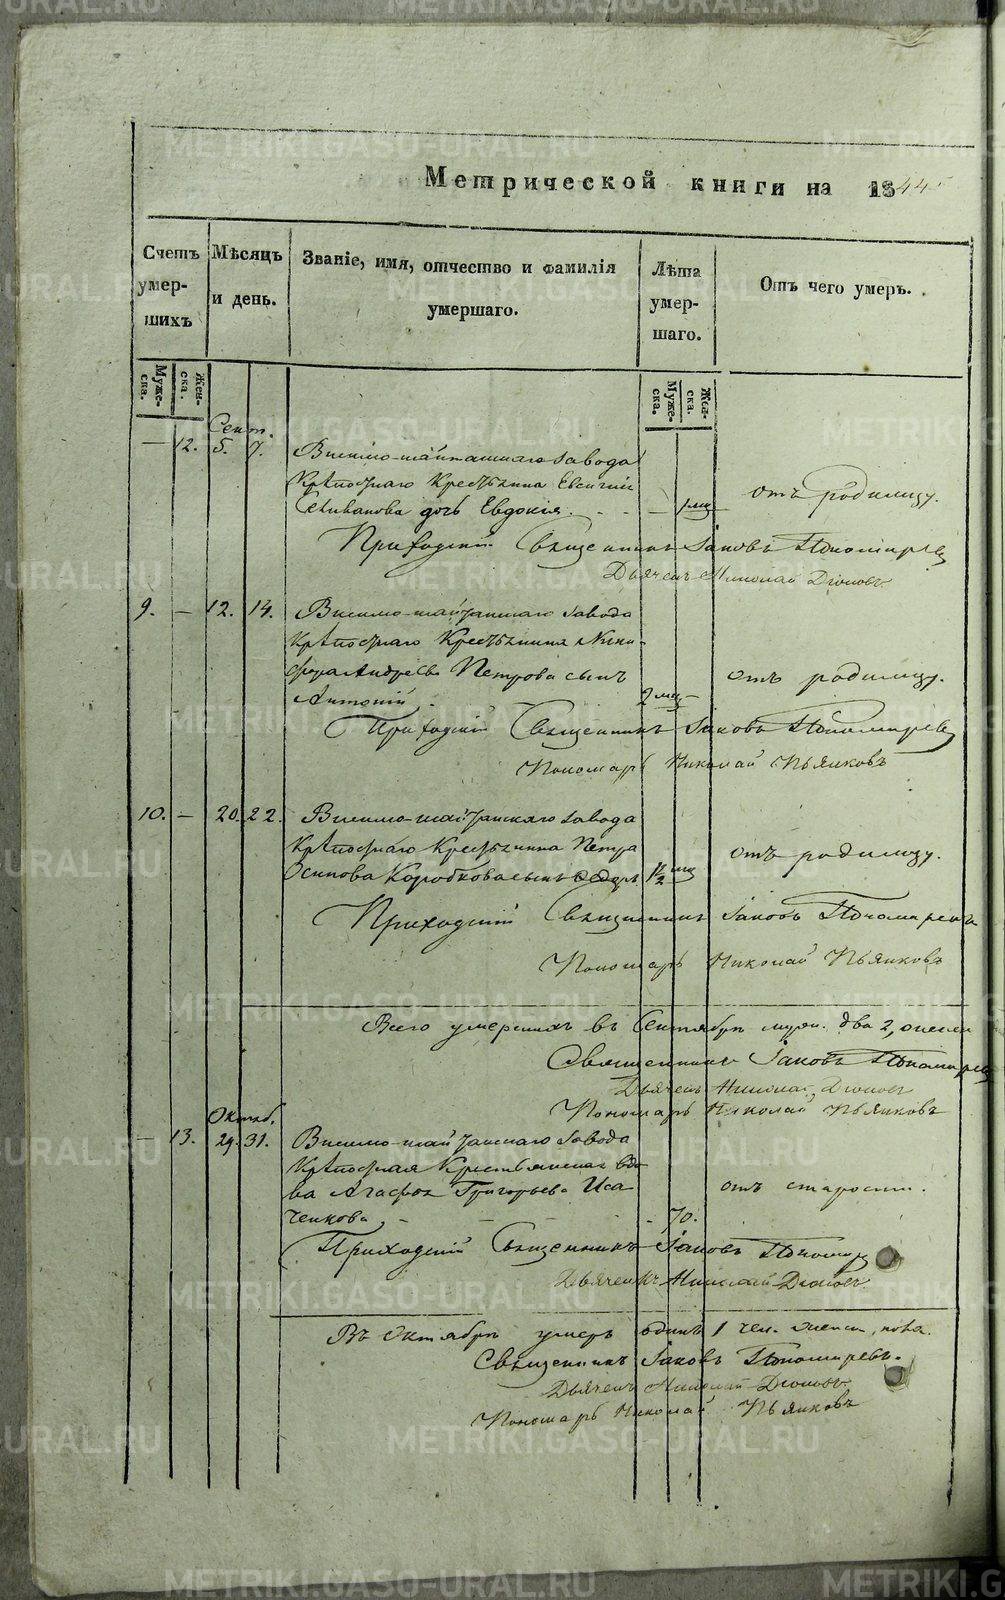 Метрической книги на 1844
Счетъ умер-шихъ
Мѣсяцъ и день.
Званіе, имя, отчество и фамилія умершаго.
Лѣта умер-шаго.
Отъ чего умеръ.
Муже-ска.
Жен-ска.
Муже-ска.
Жен-ска.
Сент.
— 12. 5. 7. Висимо-шайтанскаго завода
Крѣпостнаго Крестьянина Евсигнія
Селиванова дочь Евдокія. - - — 1 мц отъ родимцу.
Приходскій Священникъ Іаковъ Пономаревъ
Дьячекъ Николай
9. — 12. 14. Висимо-шайтанскаго завода
Крѣпостнаго Крестьянина Ники-
фора Андреева Петрова сынъ
Антоній. - 2 мц — отъ родимцу.
Приходскій Священникъ Іаковъ Пономаревъ
Пономарь Николай Пьянковъ
10. — 20. 22. Висимо-шайтанскаго завода
Крѣпостнаго Крестьянина Петра
Осипова Коробкова сынъ Ѳедоръ 1½ мц отъ родимцу.
Приходскій Священникъ Іаковъ Пономаревъ
Пономарь Николай Пьянковъ
Всего умершихъ въ Сентябрѣ муж. два 2,
Священникъ Іаковъ Пономаревъ
Дьячекъ Николай
Пономарь Николай Пьянковъ
Октяб.
— 13. 29. 31. Висимо-шайтанскаго завода
Крѣпостная Крестьянская вдо-
ва Агафья Григорьева Иса
ченкова, - - - - 70. отъ старости.
Приходскій Священникъ Іаковъ Пономар
Дьячекъ Николай
Въ Октябрѣ умеръ одинъ 1 чел. женск. пола.
Священникъ Іаковъ Пономаревъ.
Дьячекъ Николай
Пономарь Николай Пьянковъ
METRIKI.GASO-URAL.RU